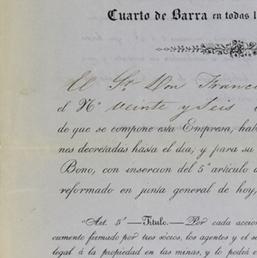 Cuarto de Barra en todas l
El Sr. Don Franci
el Nº veinte y seis
de que se compone esta Empresa, hab
nes decretadas hasta el dia, y para su
Bono, con insercion del 5º artículo d
reformado en junta general de hoy,
"Art. 5º—Título.—Por cada accion
cumento firmado por tres sócios, los agentes y el se
legal á la propiedad en las minas, y lo podrá e